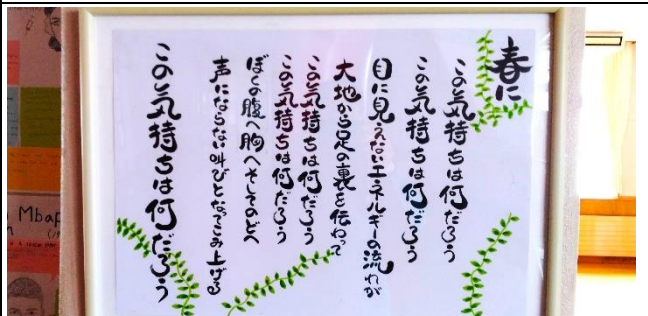 春に
この気持ちは何だろう
この気持ちは何だろう
目に見えないエネルギーの流れが
大地から足の裏を伝わって
この気持ちは何だろう
この気持ちは何だろう
ぼくの腹へ胸へそしてのどへ
声にならない叫びとなってこみ上げる
この気持ちは何だろう
Mbap